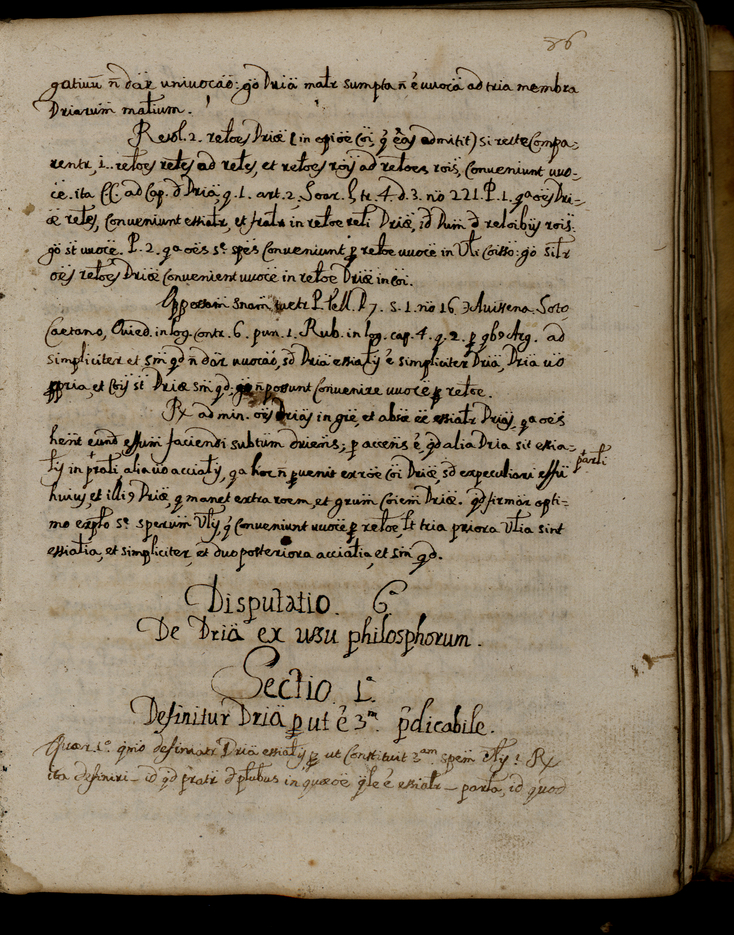 86
gativũ ñ dar univocaõ: gõ Driã matr sumpta ñ ẽ uvocã ad tria membra
Driarum matium.
Resol. 2. retoẽs Driæ (in opiõe Coi, q̃ eas admitit) si recte Compa-
rentr, i.. retoẽs retes ad retes, et retoẽs rois ad retoẽs rois, Conveniunt uvo-
ce. ita CC. ad Cap. d Driã, q. 1. art. 2. Soar. tr. 4. d. 3. no 221. P. 1. qa oẽs Dri-
æ retes, Conveniunt essiatr, et in retoe reti Driæ, id rois.
gõ st uvoce. P. 2. qa oẽs 5e spes Conveniunt p retoe uvoce in Uti Coisso: gõ siltr
oẽs retoẽs Driæ Convenient uvoce in retoe Driæ in Coi.
Oppositam Snam tuetr P. Tell. D 7. S. 1. no 16 Avissena, Soto
Caetano, Ovied. in log. Contr. 6. pun. 1. Rub. in log. cap. 4. q. 2. p Arg. ad
simpliciter et sm qd ñ dar uvocaõ, sd Driã essiatis ẽ simpliciter Driã, Driã uõ
ppria, et Cois st Driæ sm qd. gõ ñ possunt Convenire uvoce p retoe.
Rx ad min. oẽs Drias in gre, et absæ eẽ essiatr Drias, qa oẽs
hent eund essum faciendi subtum driens; p accens ẽ, qd alia Dria sit essia-
tis in prati alia uõ acciatis, qa hoc ñ puenit ex roe Coi Driæ, sd ex peculiari
prati
huius, et illi9 Driæ, q manet extra roem, et grum Coiem Driæ. qd firmar opti-
mo explo 5e sperum Utis, q̃ Conveniunt uvoce p retoe, lt tria priora Utia sint
essiatia, et simpliciter, et duo posteriora acciatia, et sm qd.
Disputatio. 6a
De Driã ex ussu philosphorum.
Sectio 1a
Definitur Driã p ut ẽ 3m pdicabile.
Quær. 1o qmo definiatr Driã essiatis p ut Constituit 3am spem Utis? Rx
ita definiri_ id qd pratr d plubus in quæoẽ qle ẽ essiatr_ parta, id quod